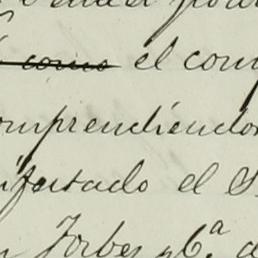 como el com
omprendiendo
ifestado el S
Forbes y C.ª d